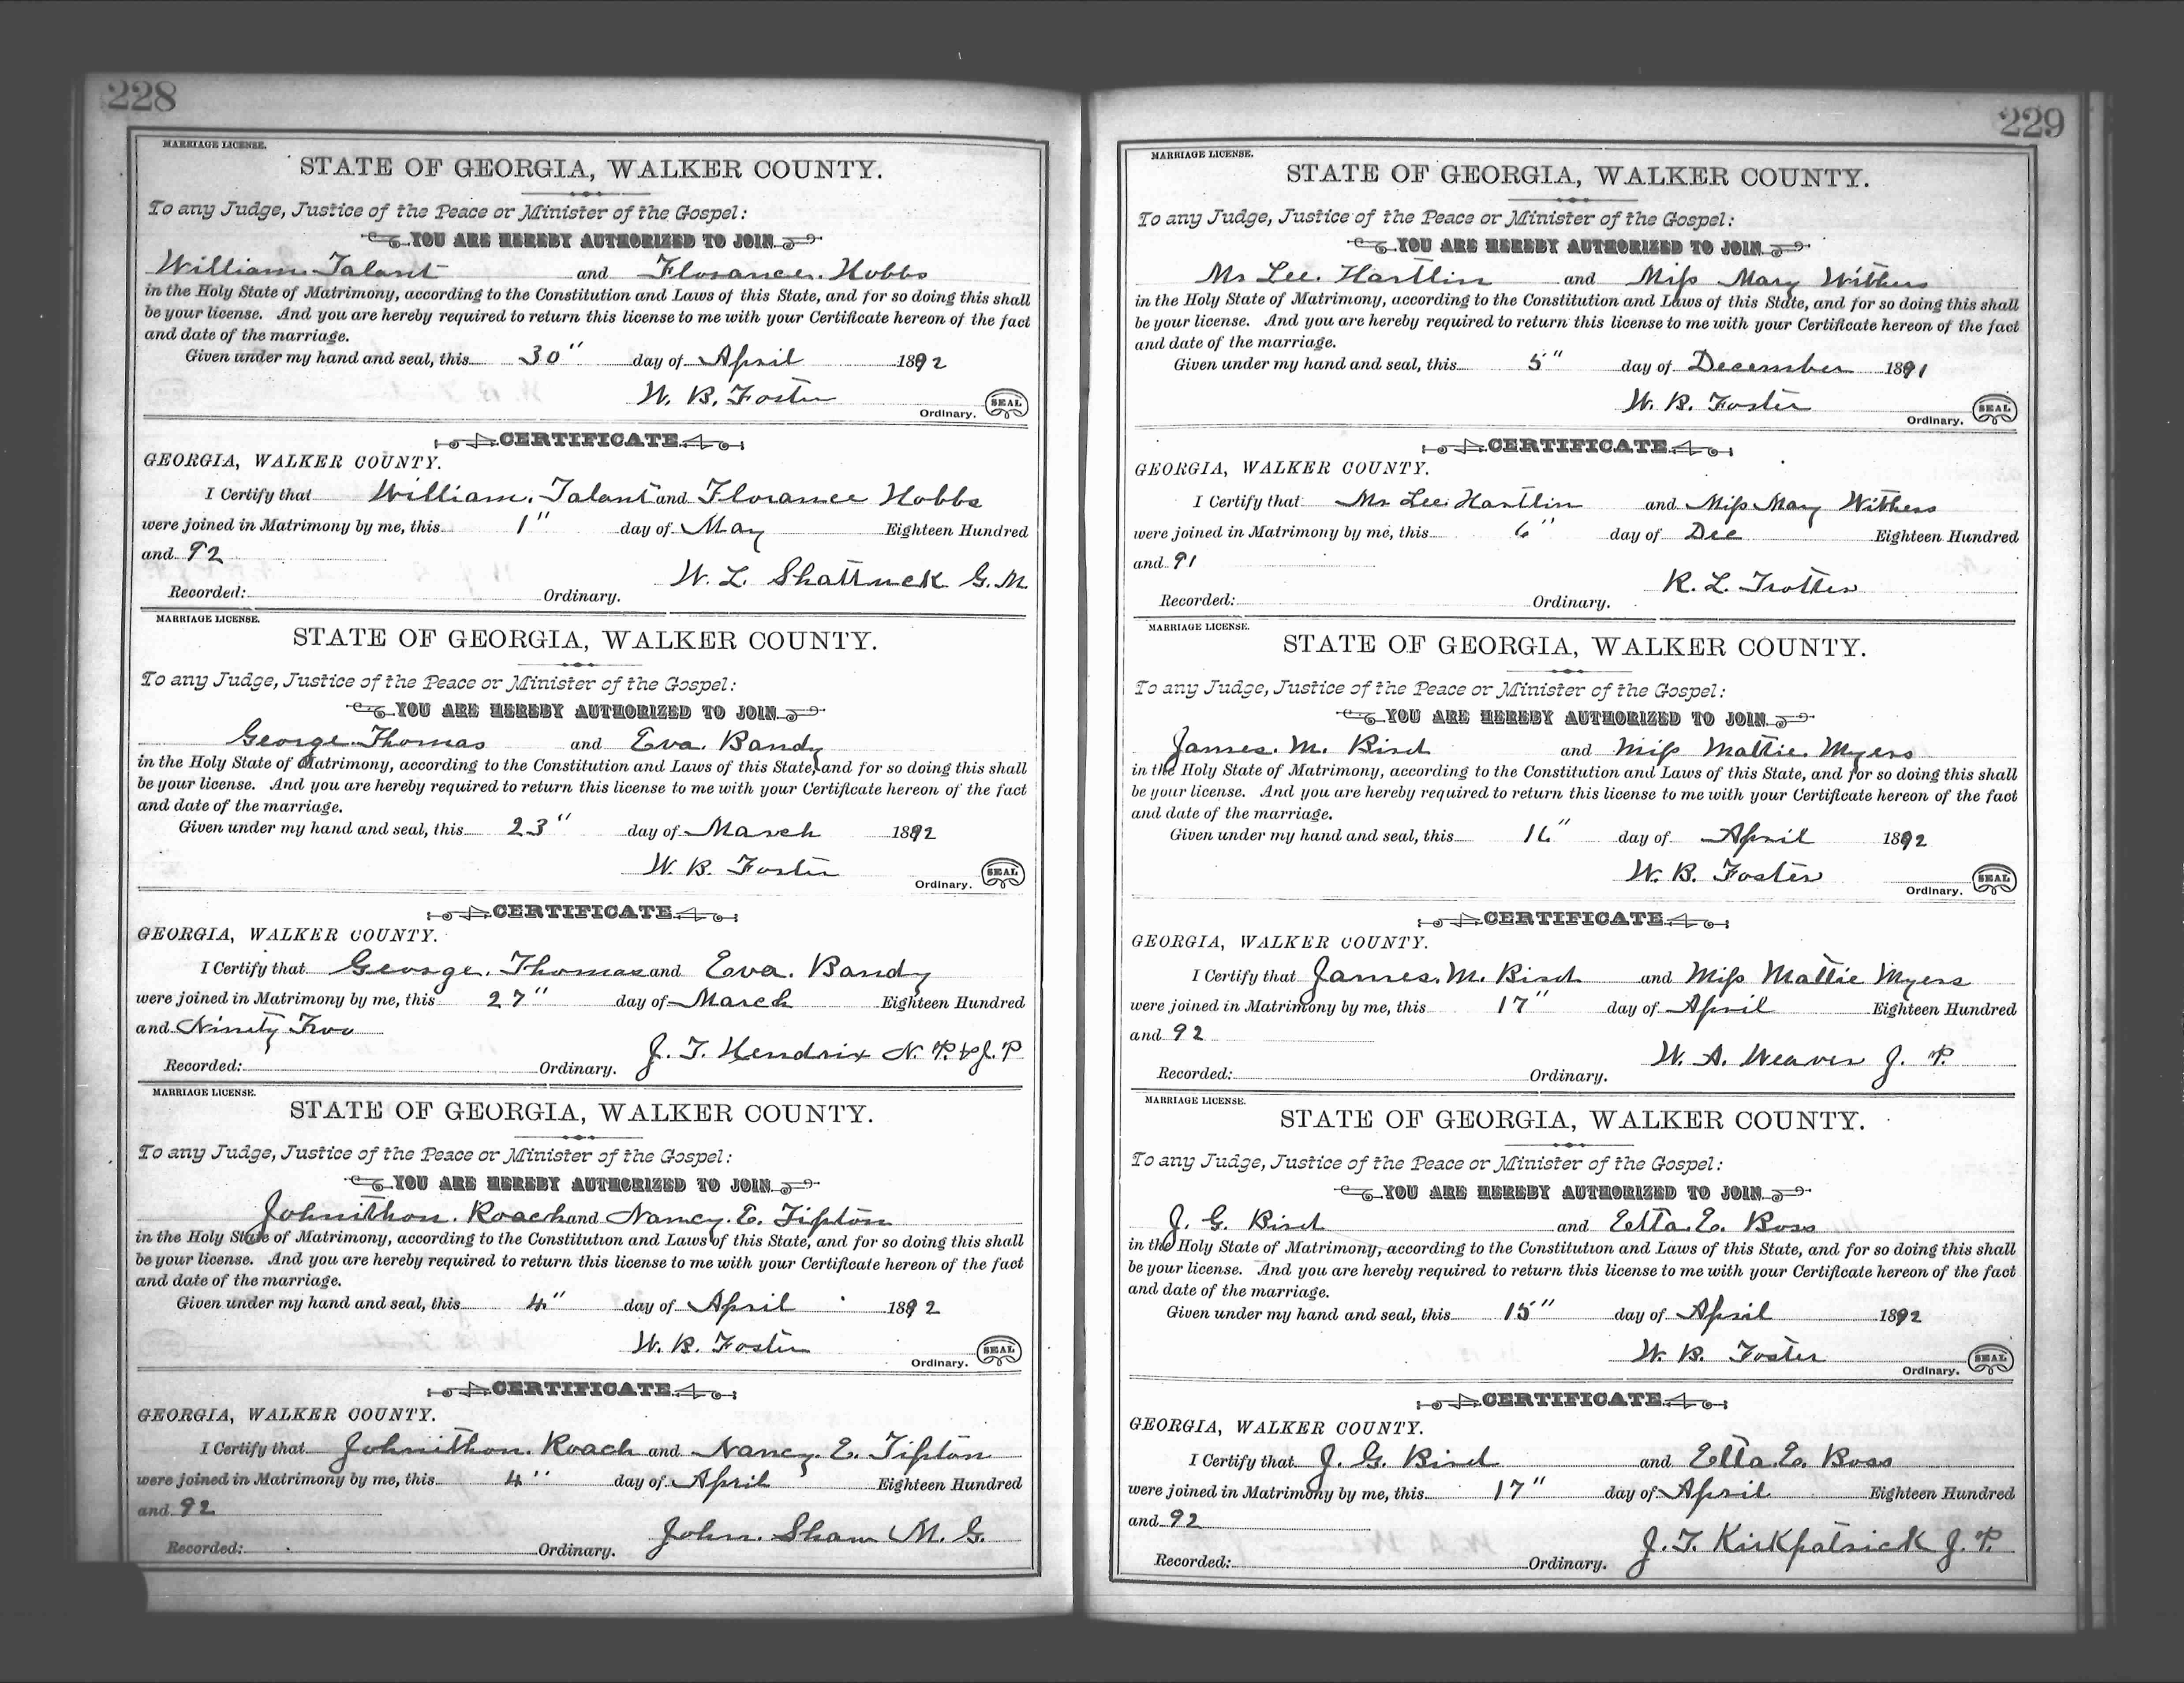 228
MARRIAGE LICENSE.
STATE OF GEORGIA, WALKER COUNTY.
To any Judge, Justice of the Peace or Minister of the Gospel:
YOU ARE HEREBY AUTHORIZED TO JOIN
William Talant and Florance Hobbs
in the Holy State of Matrimony, according to the Constitution and Laws of this State, and for so doing this shall
be your license. And you are hereby required to return this license to me with your Certificate hereon of the fact
and date of the marriage.
Given under my hand and seal, this 30" day of April 1892
W. B. Foster
Ordinary. SEAL
CERTIFICATE
GEORGIA, WALKER COUNTY.
I Certify that William Talant and Florance Hobbs
were joined in Matrimony by me, this 1" day of May Eighteen Hundred
and 92
W. L. Shattuck G. M.
Recorded: Ordinary.
MARRIAGE LICENSE.
STATE OF GEORGIA, WALKER COUNTY.
To any Judge, Justice of the Peace or Minister of the Gospel:
YOU ARE HEREBY AUTHORIZED TO JOIN
George Thomas and Eva Bandy
in the Holy State of Matrimony, according to the Constitution and Laws of this State, and for so doing this shall
be your license. And you are hereby required to return this license to me with your Certificate hereon of the fact
and date of the marriage.
Given under my hand and seal, this 23" day of March 1892
W. B. Foster
Ordinary. SEAL
CERTIFICATE
GEORGIA, WALKER COUNTY.
I Certify that George Thomas and Eva Bandy
were joined in Matrimony by me, this 27" day of March Eighteen Hundred
and Ninety Two
J. T. Hendrix N. P. & J. P.
Recorded: Ordinary.
MARRIAGE LICENSE.
STATE OF GEORGIA, WALKER COUNTY.
To any Judge, Justice of the Peace or Minister of the Gospel:
YOU ARE HEREBY AUTHORIZED TO JOIN
Johnithon Roach and Nancy E. Tipton
in the Holy State of Matrimony, according to the Constitution and Laws of this State, and for so doing this shall
be your license. And you are hereby required to return this license to me with your Certificate hereon of the fact
and date of the marriage.
Given under my hand and seal, this 4" day of April 1892
W. B. Foster
Ordinary. SEAL
CERTIFICATE
GEORGIA, WALKER COUNTY.
I Certify that Johnithon Roach and Nancy E. Tipton
were joined in Matrimony by me, this 4" day of April Eighteen Hundred
and 92
John Shaw M. G.
Recorded: Ordinary.
229
MARRIAGE LICENSE.
STATE OF GEORGIA, WALKER COUNTY.
To any Judge, Justice of the Peace or Minister of the Gospel:
YOU ARE HEREBY AUTHORIZED TO JOIN
Mr Lee Hartlin and Miss Mary Withers
in the Holy State of Matrimony, according to the Constitution and Laws of this State, and for so doing this shall
be your license. And you are hereby required to return this license to me with your Certificate hereon of the fact
and date of the marriage.
Given under my hand and seal, this 5" day of December 1891
W. B. Foster
Ordinary. SEAL
CERTIFICATE
GEORGIA, WALKER COUNTY.
I Certify that Mr Lee Hartlin and Miss Mary Withers
were joined in Matrimony by me, this 6" day of Dec Eighteen Hundred
and 91
R. L. Trotter
Recorded: Ordinary.
MARRIAGE LICENSE.
STATE OF GEORGIA, WALKER COUNTY.
To any Judge, Justice of the Peace or Minister of the Gospel:
YOU ARE HEREBY AUTHORIZED TO JOIN
James. M. Bird and Miss Mattie Myers
in the Holy State of Matrimony, according to the Constitution and Laws of this State, and for so doing this shall
be your license. And you are hereby required to return this license to me with your Certificate hereon of the fact
and date of the marriage.
Given under my hand and seal, this 16" day of April 1892
W. B. Foster
Ordinary. SEAL
CERTIFICATE
GEORGIA, WALKER COUNTY.
I Certify that James. M. Bird and Miss Mattie Myers
were joined in Matrimony by me, this 17" day of April Eighteen Hundred
and 92
W. A. Weaver J. P.
Recorded: Ordinary.
MARRIAGE LICENSE.
STATE OF GEORGIA, WALKER COUNTY.
To any Judge, Justice of the Peace or Minister of the Gospel:
YOU ARE HEREBY AUTHORIZED TO JOIN
J. G. Bird and Etta. E. Boss
in the Holy State of Matrimony, according to the Constitution and Laws of this State, and for so doing this shall
be your license. And you are hereby required to return this license to me with your Certificate hereon of the fact
and date of the marriage.
Given under my hand and seal, this 15" day of April 1892
W. B. Foster
Ordinary. SEAL
CERTIFICATE
GEORGIA, WALKER COUNTY.
I Certify that J. G. Bird and Etta. E. Boss
were joined in Matrimony by me, this 17" day of April Eighteen Hundred
and 92
J. T. Kirkpatrick J. P.
Recorded: Ordinary.